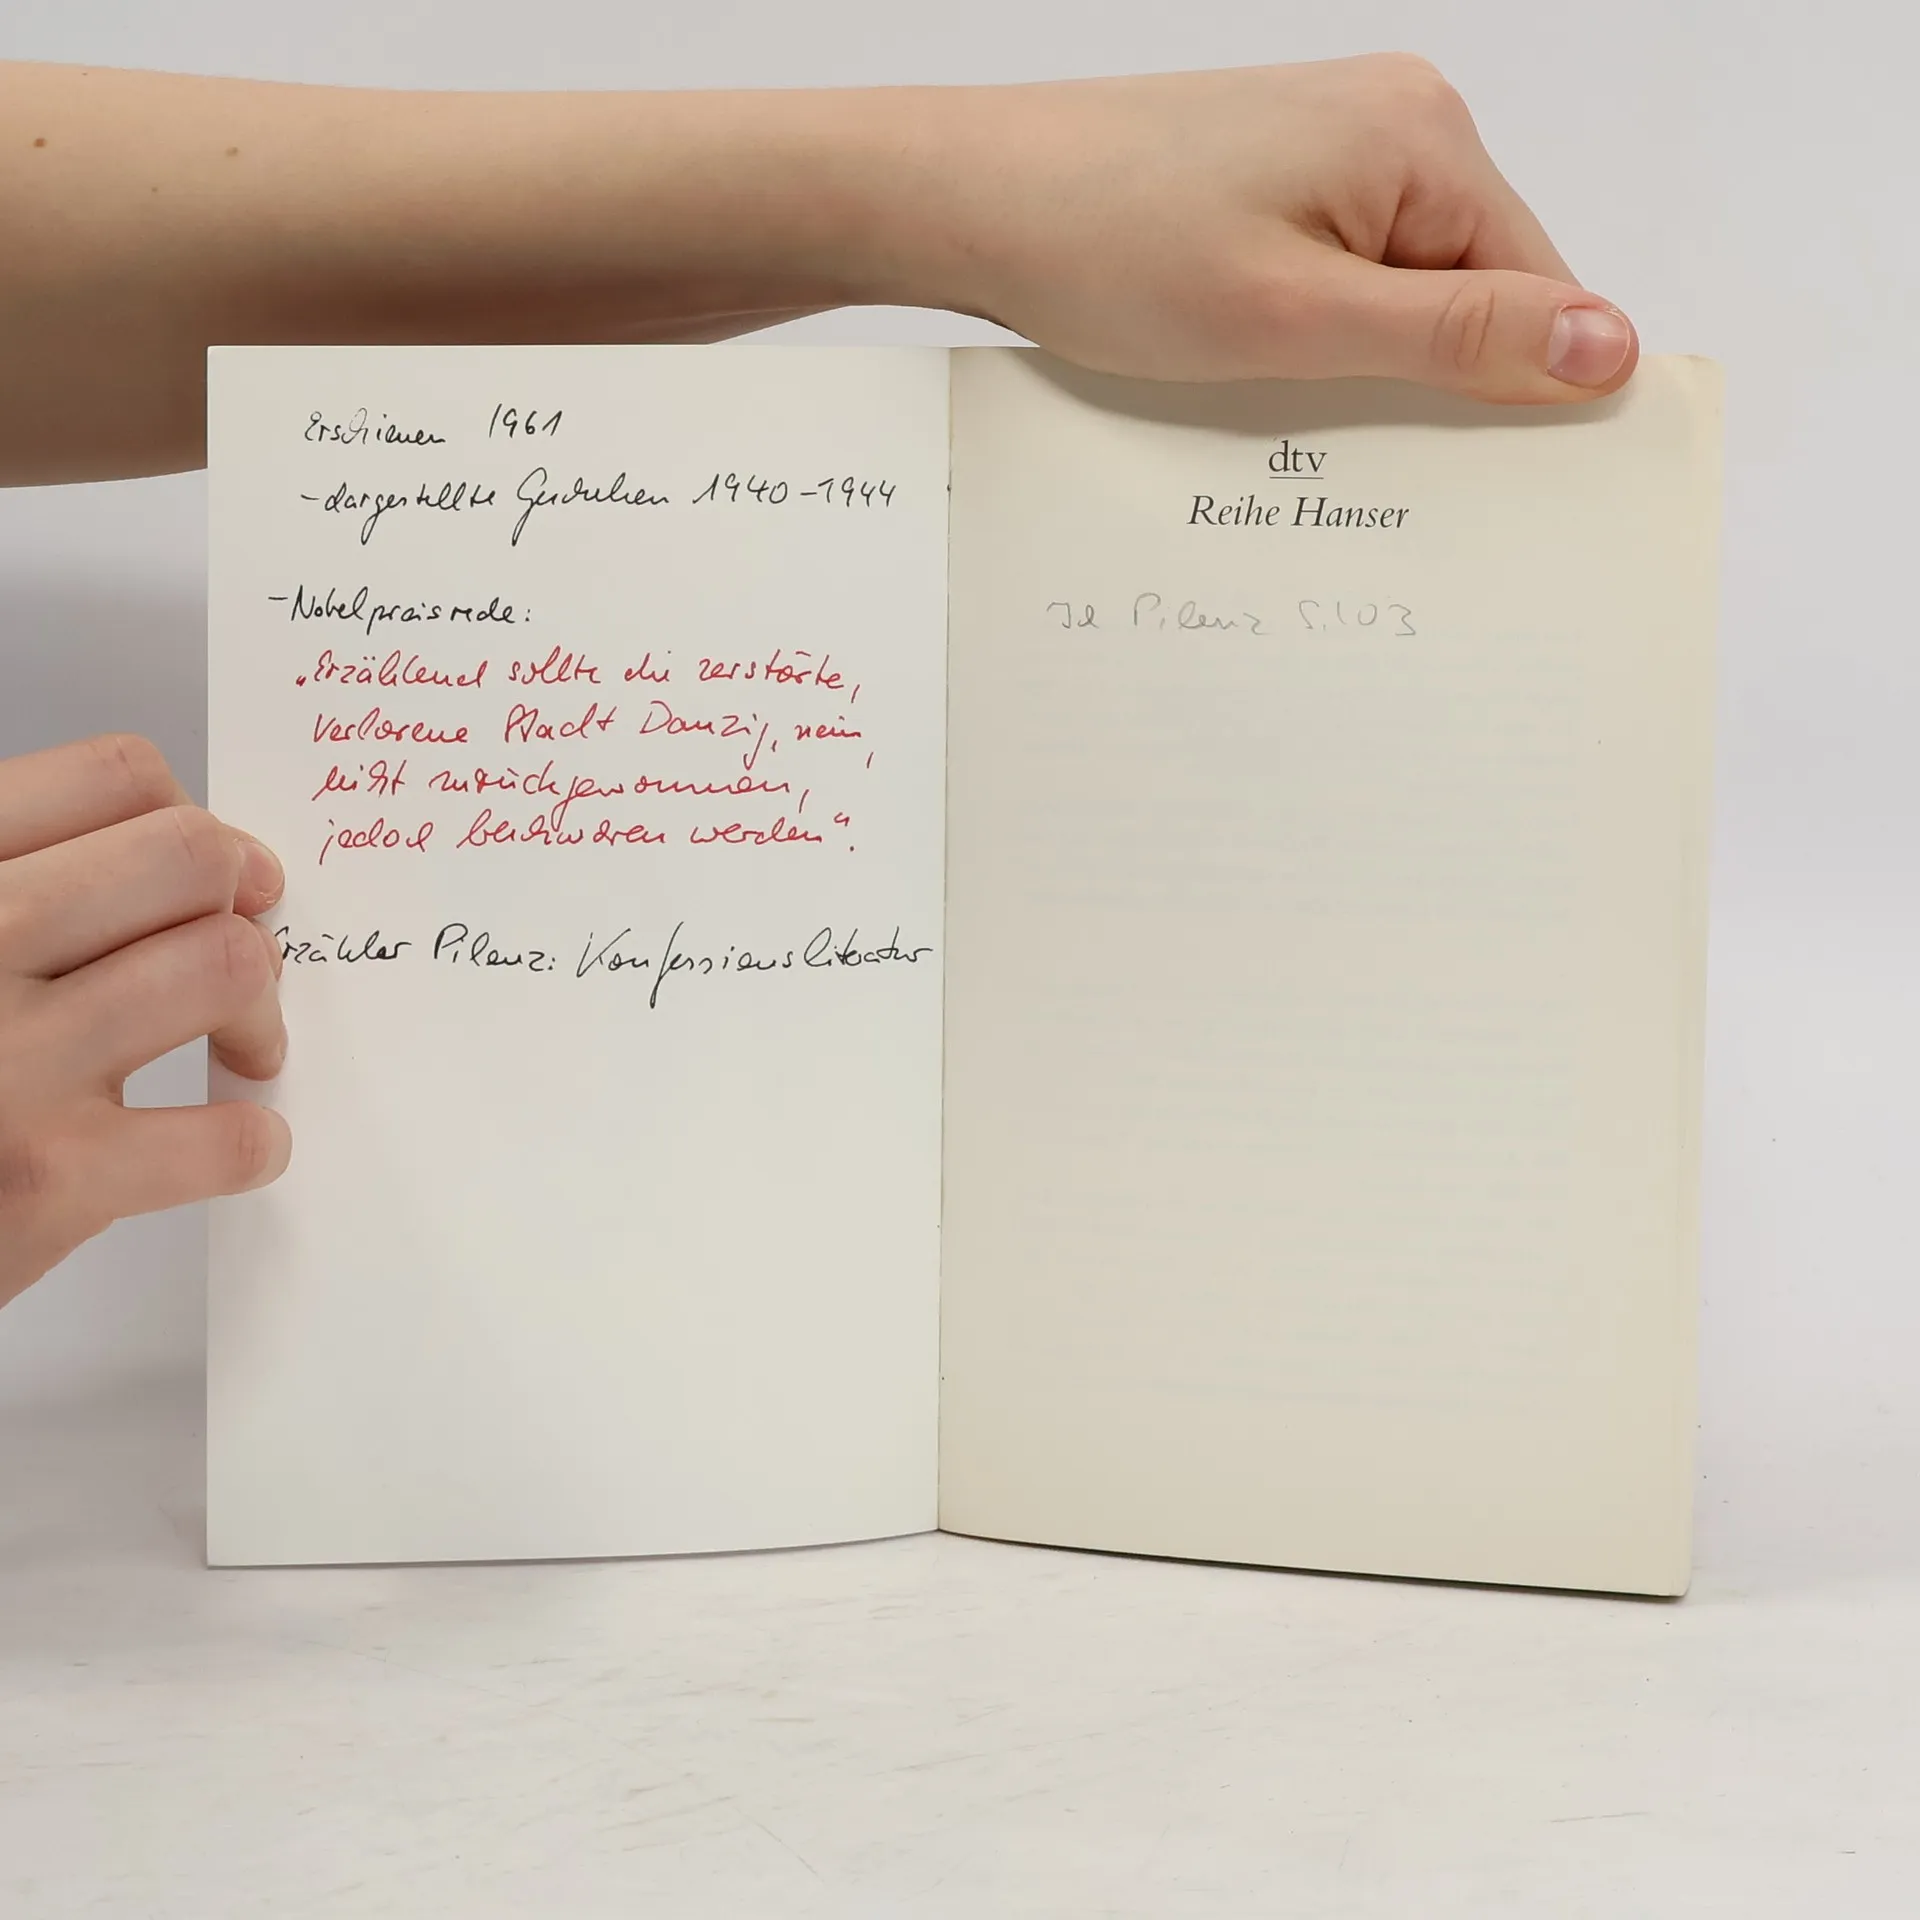 Erschienen 1961
- dargestellte Geschehen 1940 - 1944
- Nobelpreisrede:
„Erzählend sollte die zerstörte,
verlorene Stadt Danzig, nein,
nicht zurückgewonnen,
jedoch beschworen werden“.
Erzähler Pilenz: Konfessionsliteratur
dtv
Reihe Hanser
Ich Pilenz S. 103